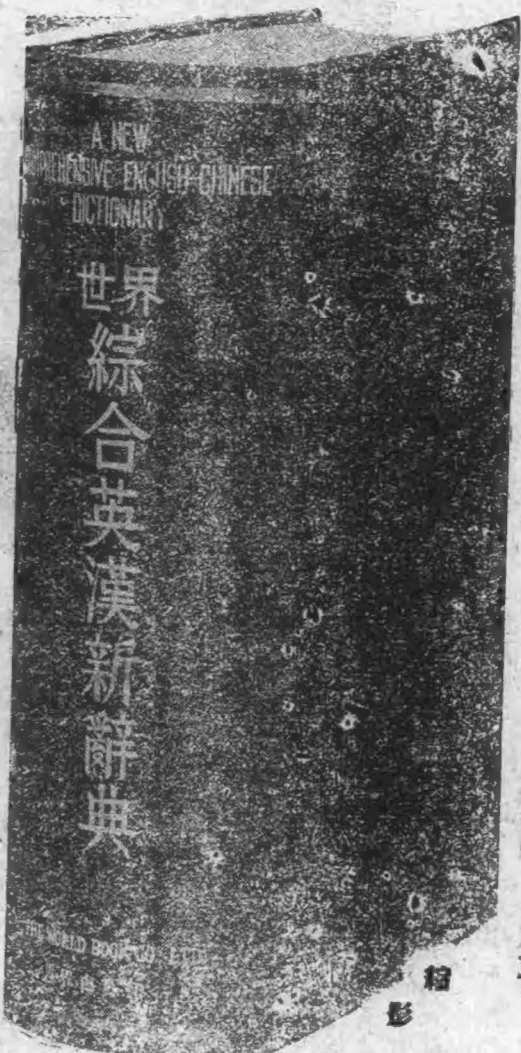 A NEW
COMPREHENSIVE ENGLISH-CHINESE
DICTIONARY
世界
綜合英漢新辭典
THE WORLD BOOK CO. LTD.